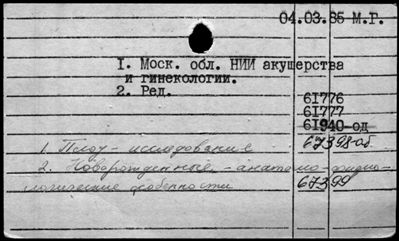 04.03.85 М.Г.
I. Моск. обл. НИИ акушерства
и гинекологии.
2. Ред.
6I776
6I777
6I940-од
1. Плод - исследование 67398-об.
2. Новорожденные - анатомо-физио-
логические особенности 67399